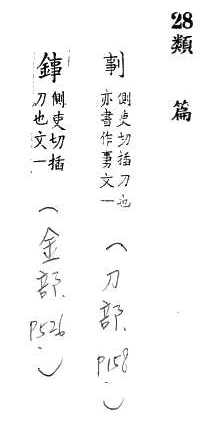 28類篇
剚 側吏切插刀也
亦書作剚文一
(刀部. P158.)
鋛 側吏切插
刀也文一
(金部. P526.)